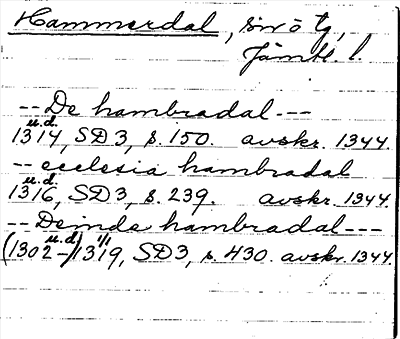 Hammerdal, sn o tg,
Jämtl. l.
-- De hambradal ---
u.d.
1314, SD 3, s. 150. avskr. 1344.
-- ecclesia hambradal
u.d.
1316, SD 3, s. 239. avskr. 1344.
-- Deinde hambradal ---
(1302-u.d.) 1/1 1319, SD 3, s. 430. avskr. 1344.